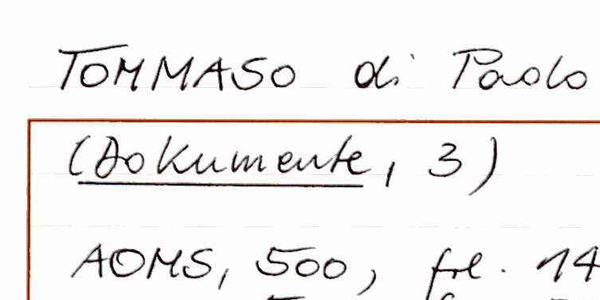 TOMMASO di Paolo
(Dokumente, 3)
AOMS, 500, fol. 14